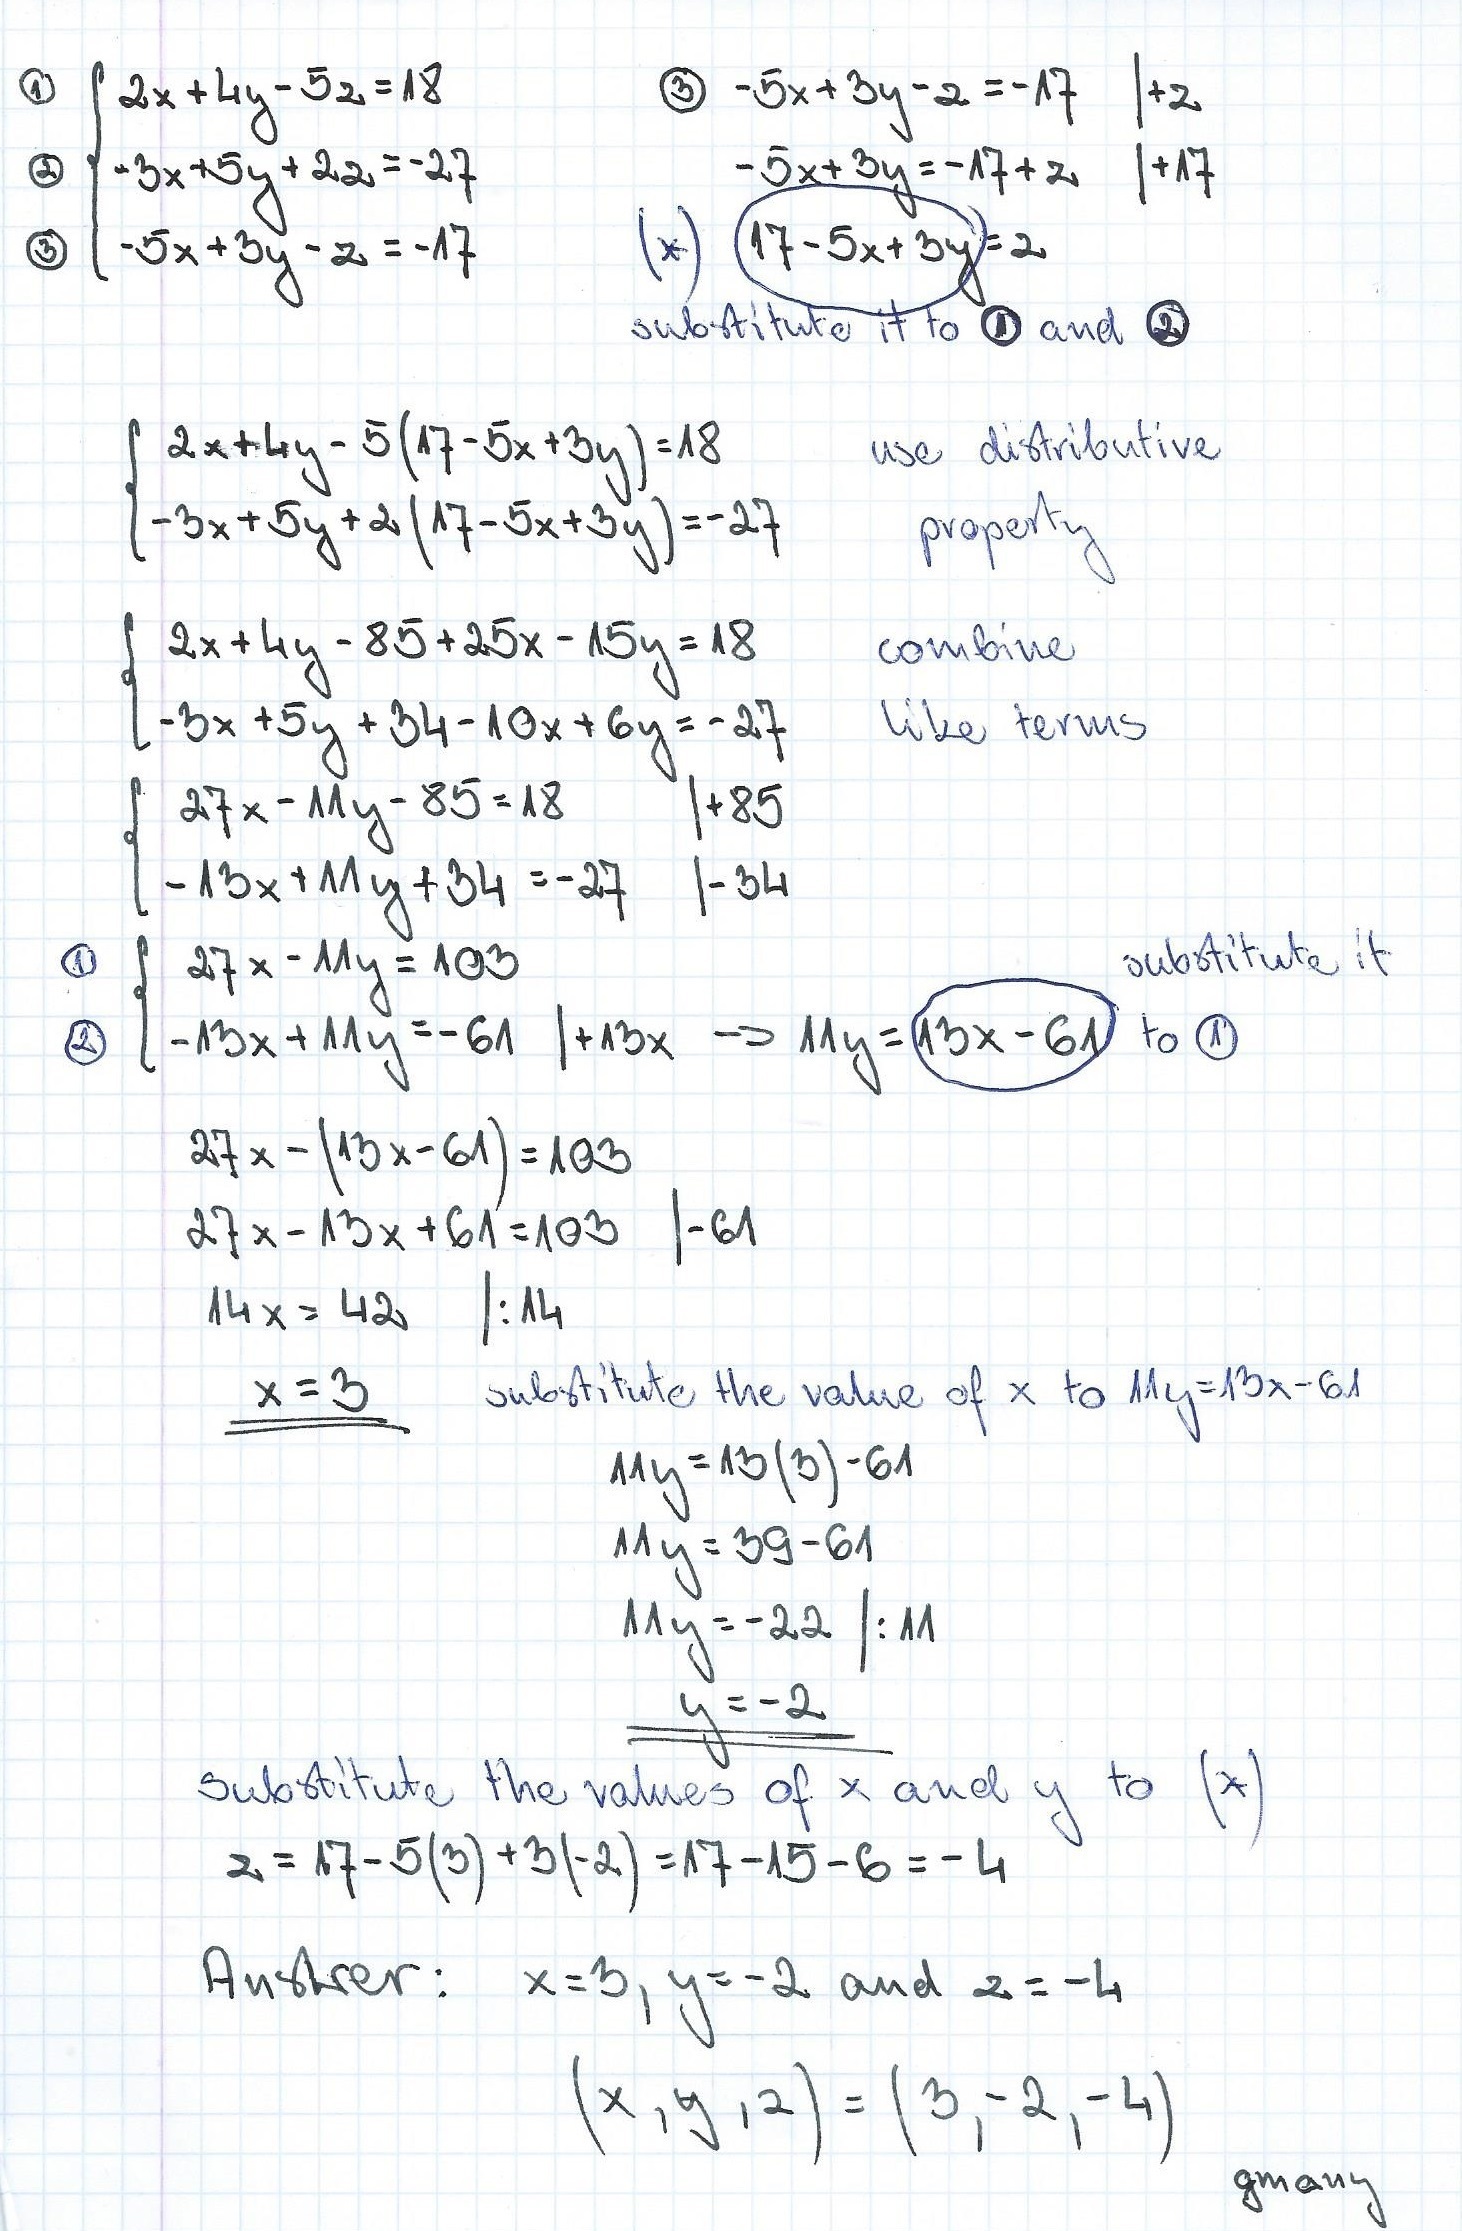 ① 2x+4y-5z=18
② -3x+5y+2z=-27
③ -5x+3y-z=-17
③ -5x+3y-z=-17 |+z
-5x+3y=-17+z |+17
(*) 17-5x+3y=z
substitute it to ① and ②
2x+4y-5(17-5x+3y)=18 use distributive
-3x+5y+2(17-5x+3y)=-27 property
2x+4y-85+25x-15y=18 combine
-3x+5y+34-10x+6y=-27 like terms
27x-11y-85=18 |+85
-13x+11y+34=-27 |-34
① 27x-11y=103 substitute it
② -13x+11y=-61 |+13x → 11y=13x-61 to ①
27x-(13x-61)=103
27x-13x+61=103 |-61
14x=42 |:14
x=3 substitute the value of x to 11y=13x-61
11y=13(3)-61
11y=39-61
11y=-22 |:11
y=-2
substitute the values of x and y to (*)
z=17-5(3)+3(-2)=17-15-6=-4
Answer: x=3, y=-2 and z=-4
(x, y, z) = (3, -2, -4)
gmany